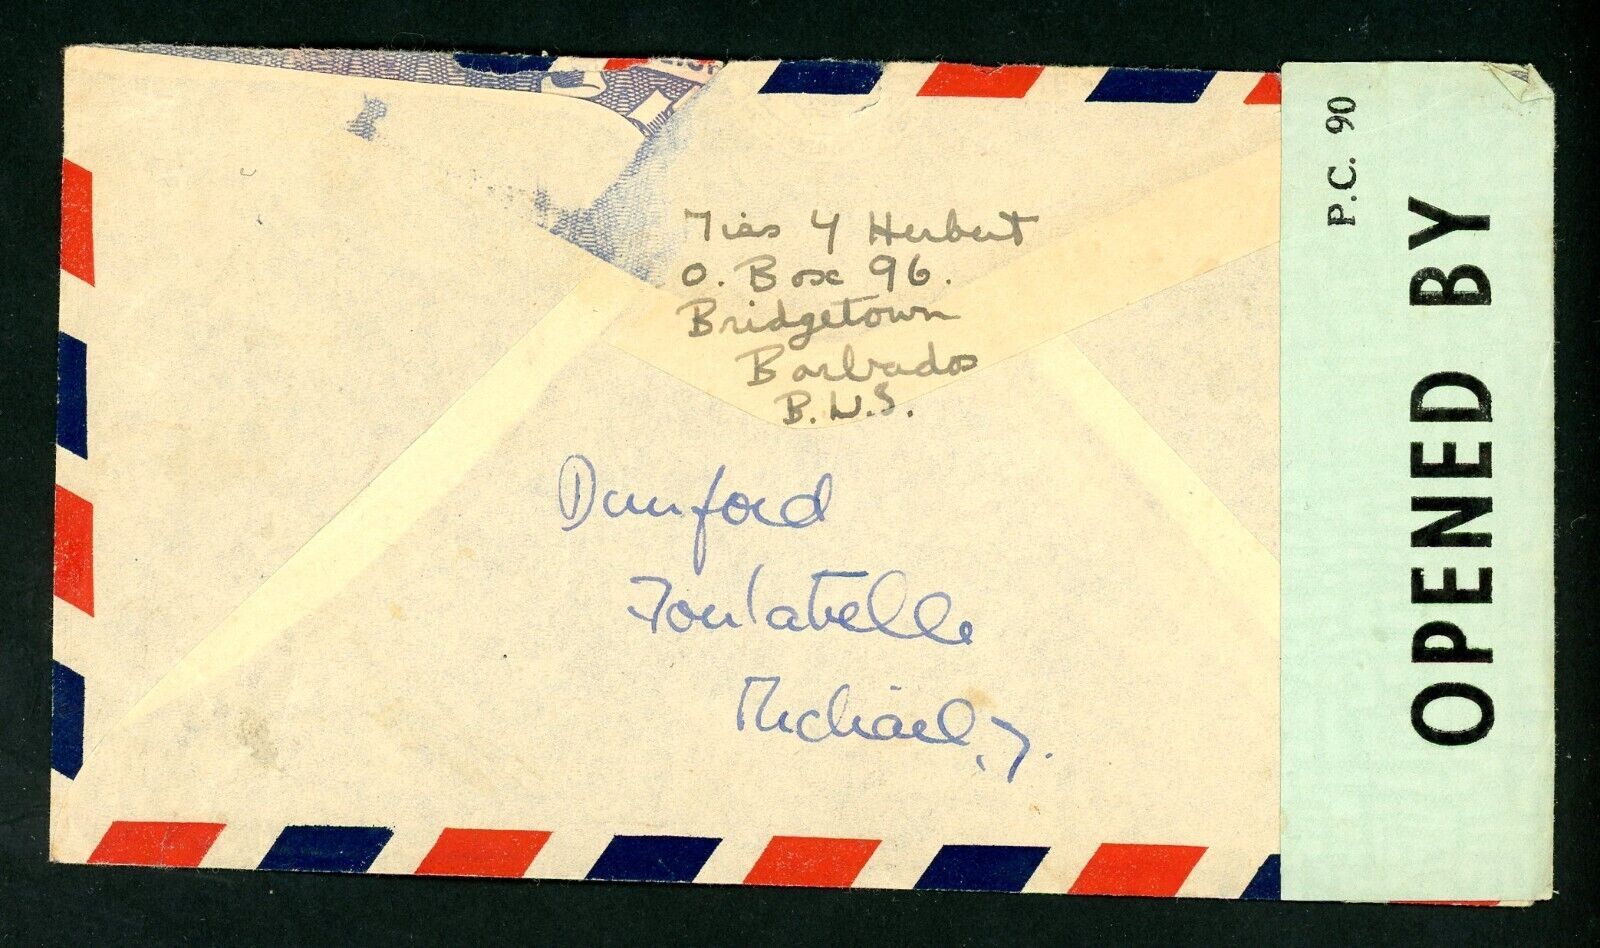 Miss Y Herbert
O. Box 96.
Bridgetown
Barbados
B.W.I.
Dunford
Fontabelle
Michael, 7.
P.C. 90
OPENED BY